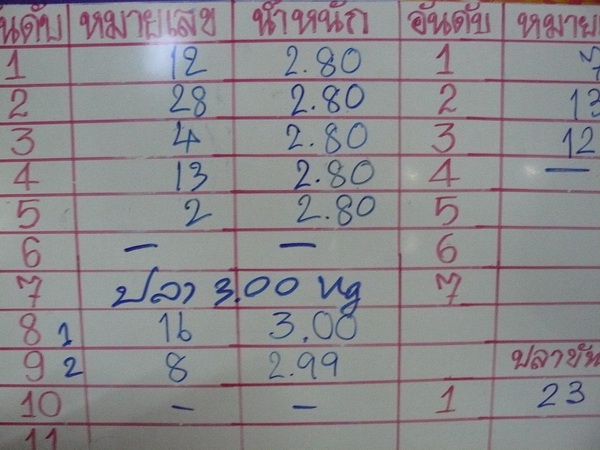 อันดับ หมายเลข น้ำหนัก อันดับ
1 12 2.80 1 7
2 28 2.80 2 13
3 4 2.80 3 12
4 13 2.80 4 —
5 2 2.80 5
6 — — 6
7 ปลา 3.00 kg 7
8 1 16 3.00
9 2 8 2.99
10 — — 1 23
11